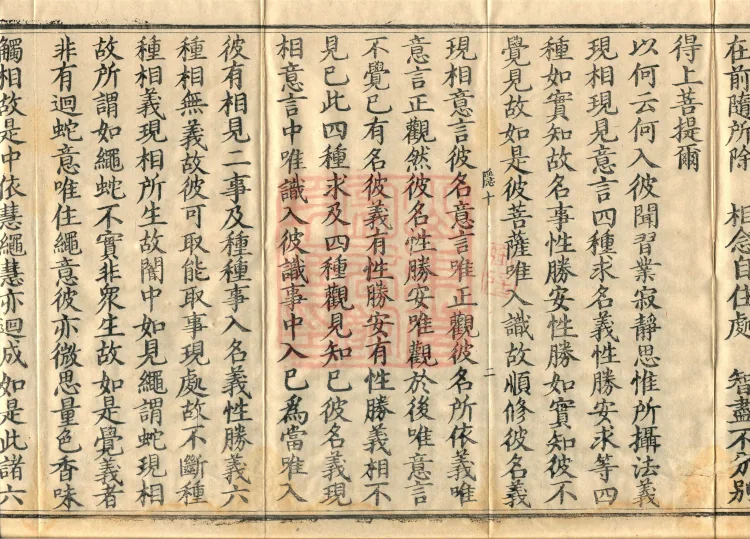 在前隨所除 相念自住處 智盡不分別
得上菩提爾
以何云何入彼聞習業寂靜思惟所攝法義
現相現見意言四種求名義性勝安求等四
種如實知故名事性勝安性勝如實知彼不
覺見故如是彼菩薩唯入識故順修彼名義
隱十
二
現相意言彼名意言唯正觀彼名所依義唯
意言正觀然彼名性勝安唯觀於後唯意言
不覺已有名彼義有性勝安有性勝義相不
見已此四種求及四種觀見知已彼名義現
相意言中唯識入彼識事中入已為當唯入
彼有相見二事及種種事入名義性勝義六
種相無義故彼可取能取事現處故不斷種
種相義現相所生故闇中如見繩謂蛇現相
故所謂如繩蛇不實非眾生故如是覺義者
非有迴蛇意唯住繩意彼亦微思量色香味
觸相故是中依慧繩慧亦迴成如是此諸六